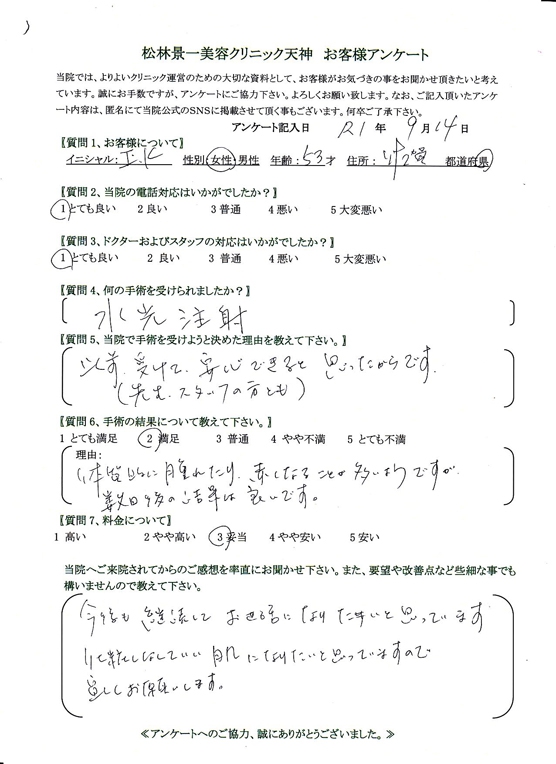 松林景一美容クリニック天神 お客様アンケート
当院では、よりよいクリニック運営のための大切な資料として、お客様がお気づきの事をお聞かせ頂きたいと考え
ています。誠にお手数ですが、アンケートにご協力下さい。よろしくお願い致します。なお、ご記入頂いたアンケ
ート内容は、匿名にて当院公式のSNSに掲載させて頂く事もございます。何卒ご了承下さい。
アンケート記入日 R1 年 9 月 14 日
〖質問1、お客様について〗
イニシャル: I.K 性別 女性・男性 年齢: 53 才 住所: 佐賀 都道府県
〖質問2、当院の電話対応はいかがでしたか?〗
1 とても良い 2 良い 3 普通 4 悪い 5 大変悪い
〖質問3、ドクターおよびスタッフの対応はいかがでしたか?〗
1 とても良い 2 良い 3 普通 4 悪い 5 大変悪い
〖質問4、何の手術を受けられましたか?〗
水光注射
〖質問5、当院で手術を受けようと決めた理由を教えて下さい。〗
以前、受けて、安心できると思ったからです。
(先生、スタッフの方とも)
〖質問6、手術の結果について教えて下さい。〗
1 とても満足 2 満足 3 普通 4 やや不満 5 とても不満
理由:
体質的に腫れたり、赤くなることが多いようですが、
数日後の結果は良いです。
〖質問7、料金について〗
1 高い 2 やや高い 3 妥当 4 やや安い 5 安い
当院へご来院されてからのご感想を率直にお聞かせ下さい。また、要望や改善点など些細な事でも
構いませんので教えて下さい。
今後も継続してお世話になりたいと思っています
化粧しなくていい肌になりたいと思っていますので
宜しくお願いします。
≪アンケートへのご協力、誠にありがとうございました。≫